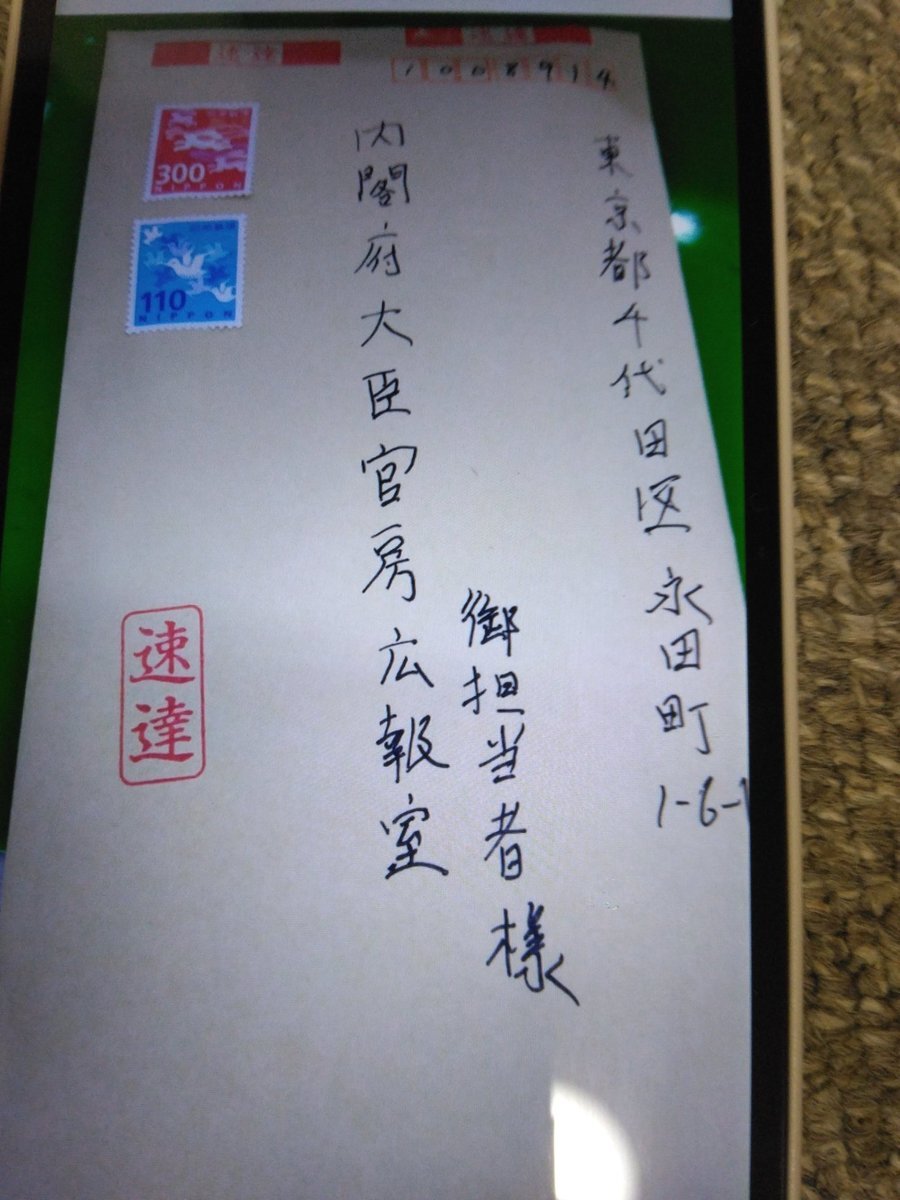 速達
速達
1008914
東京都千代田区永田町1-6-1
内閣府大臣官房広報室
御担当者様
300
NIPPON
110
NIPPON
速達